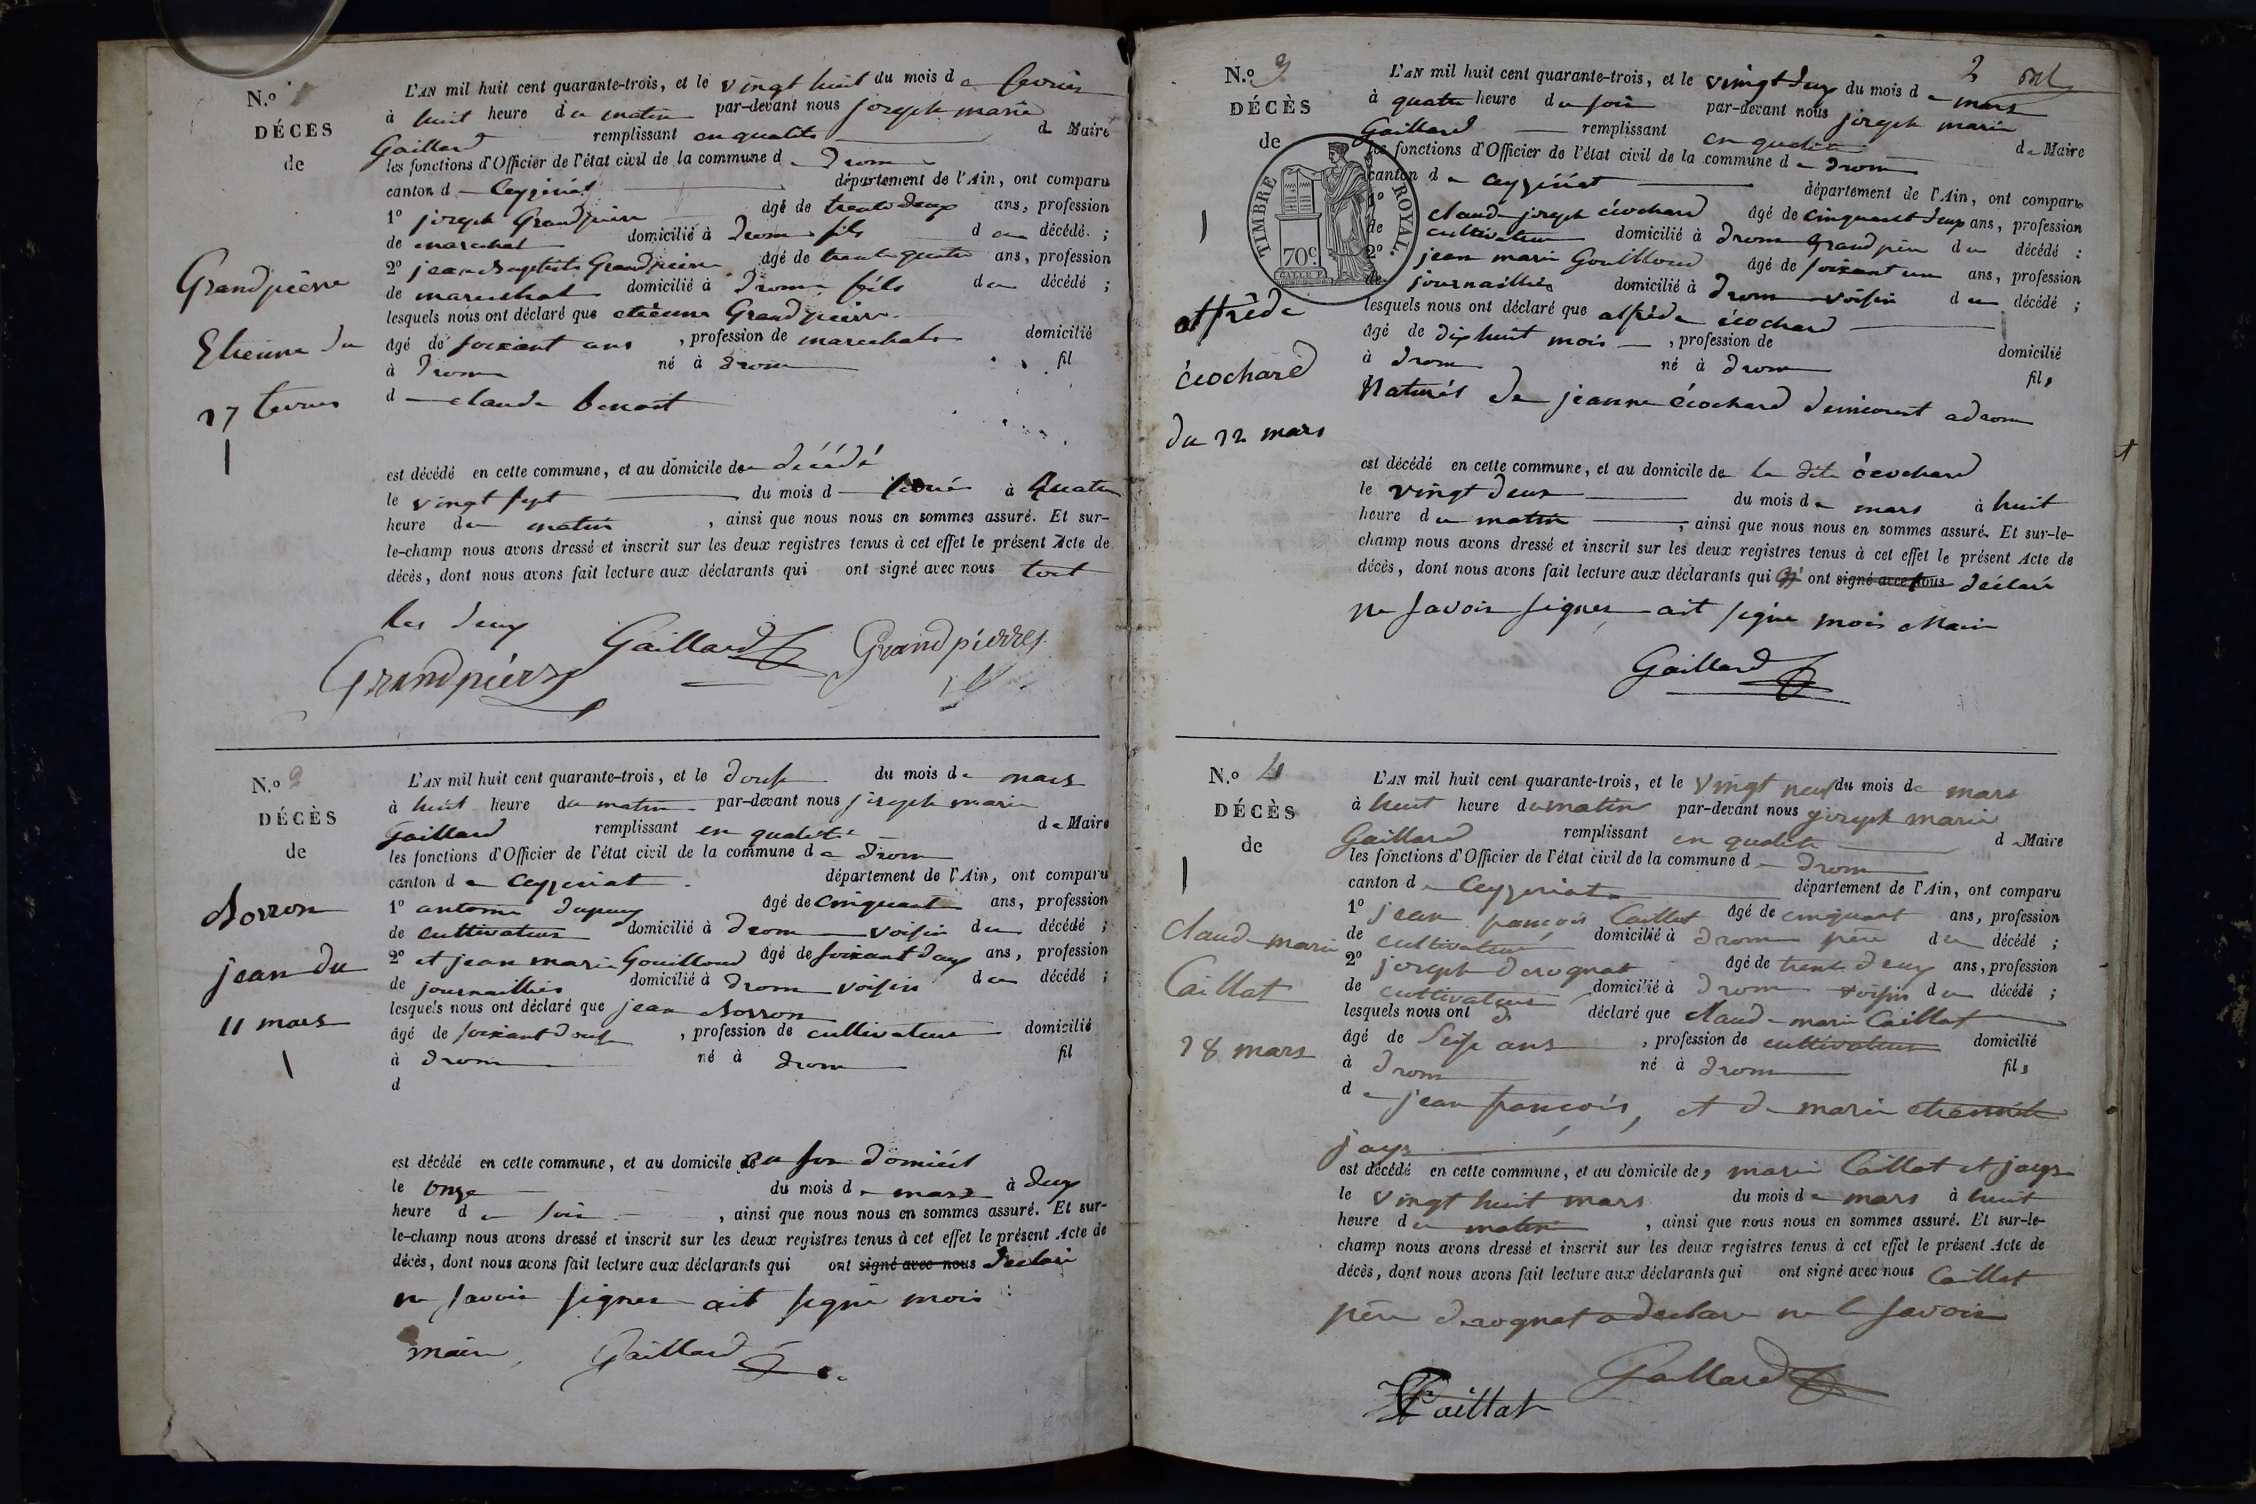 N.º 1
DÉCES
de
Grandpierre
Etienne du
27 fevrier
L'AN mil huit cent quarante-trois, et le vingt huit du mois de fevrier
à huit heure du matin par-devant nous joseph marie
Gaillard remplissant en qualité d Maire
les fonctions d'Officier de l'état civil de la commune de Drom
canton de Ceyzeriat département de l'Ain, ont comparu
1º joseph Grandpierre agé de trente deux ans, profession
de marechal domicilié à Drom fils du décédé ;
2º jean Baptiste Grandpierre âgé de trente quatre ans, profession
de marechal domicilié à Drom fils du décédé ;
lesquels nous ont déclaré que etienne Grandpierre
âgé de soixant ans , profession de marechal domicilié
à Drom né à Drom fil
de claude benoit
est décédé en cette commune, et au domicile de décédé
le vingt sept du mois de fevrié à quatre
heure du matin , ainsi que nous nous en sommes assuré. Et sur-
le-champ nous avons dressé et inscrit sur les deux registres tenus à cet effet le présent Acte de
décès, dont nous avons fait lecture aux déclarants qui ont signé avec nous tout
les deux
Gaillard Grandpierre
Grandpierre
N.º 2
DÉCÈS
de
Borron
jean du
11 mars
L'AN mil huit cent quarante-trois, et le douse du mois de mars
à huit heure du matin par-devant nous joseph marie
Gaillard remplissant en qualité de Maire
les fonctions d'Officier de l'état civil de la commune de Drom
canton de Ceyzeriat département de l'Ain, ont comparu
1º antoine dupuy âgé de cinquant ans, profession
de cultivateur domicilié à Drom voisin du décédé ;
2º et jean marie Gouilloud âgé de soixant deux ans, profession
de journaillier domicilié à Drom voisin du décédé ;
lesquels nous ont déclaré que jean Borron
âgé de soixant douse , profession de cultivateur domicilié
à Drom né à Drom fil
d
est décédé en cette commune, et au domicile de son domicil
le onze du mois de mars à deux
heure du soir , ainsi que nous nous en sommes assuré. Et sur-
le-champ nous avons dressé et inscrit sur les deux registres tenus à cet effet le présent Acte de
décès, dont nous avons fait lecture aux déclarants qui ont signé avec nous declaré
ne savoir signer ait signé mois
maire, Gaillard
2
N.º 3
DÉCÈS
de
TIMBRE ROYAL.
70c.
alfrède
écochard
du 22 mars
L'AN mil huit cent quarante-trois, et le vingt deux du mois de mars
à quatre heure du soir par-devant nous joseph marie
Gaillard remplissant en qualité de Maire
les fonctions d'Officier de l'état civil de la commune de Drom
canton de Ceyzériat département de l'Ain, ont comparu
1º claude joseph écochard âgé de cinquant deux ans, profession
de cultivateur domicilié à Drom Grand père du décédé :
2º jean marie Gouilloud âgé de soixant un ans, profession
de journaillié domicilié à Drom voisin du décédé ;
lesquels nous ont déclaré que alfrède écochard
âgé de dix huit mois , profession de domicilié
à Drom né à Drom fils
Naturél de jeanne écochard demeurent a drom
est décédé en cette commune, et au domicile de la dite écochard
le vingt deux du mois de mars à huit
heure du matin , ainsi que nous nous en sommes assuré. Et sur-le-
champ nous avons dressé et inscrit sur les deux registres tenus à cet effet le présent Acte de
décès, dont nous avons fait lecture aux déclarants qui ont signé avec nous déclaré
ne savoir signer ait signé mois Maire
Gaillard
N.º 4
DÉCÈS
de
claude marie
Caillat
28 mars
L'AN mil huit cent quarante-trois, et le vingt neuf du mois de mars
à huit heure du matin par-devant nous joseph marie
Gaillard remplissant en qualité de Maire
les fonctions d'Officier de l'état civil de la commune de Drom
canton de Ceyzeriat département de l'Ain, ont comparu
1º jean françois Caillat âgé de cinquant ans, profession
de cultivateur domicilié à Drom père du décédé ;
2º joseph derognat âgé de trente deux ans, profession
de cultivateur domicilié à Drom voisin du décédé ;
lesquels nous ont déclaré que claude marie Caillat
âgé de seise ans , profession de cultivateur domicilié
à Drom né à Drom fils
de jean françois, et de marie
jays
est décédé en cette commune, et au domicile de marie Caillat et jays
le vingt huit mars du mois de mars à huit
heure du matin , ainsi que nous nous en sommes assuré. Et sur-le-
champ nous avons dressé et inscrit sur les deux registres tenus à cet effet le présent Acte de
décès, dont nous avons fait lecture aux déclarants qui ont signé avec nous Caillat
père derognat a declare ne l savoir
Gaillard
Caillat